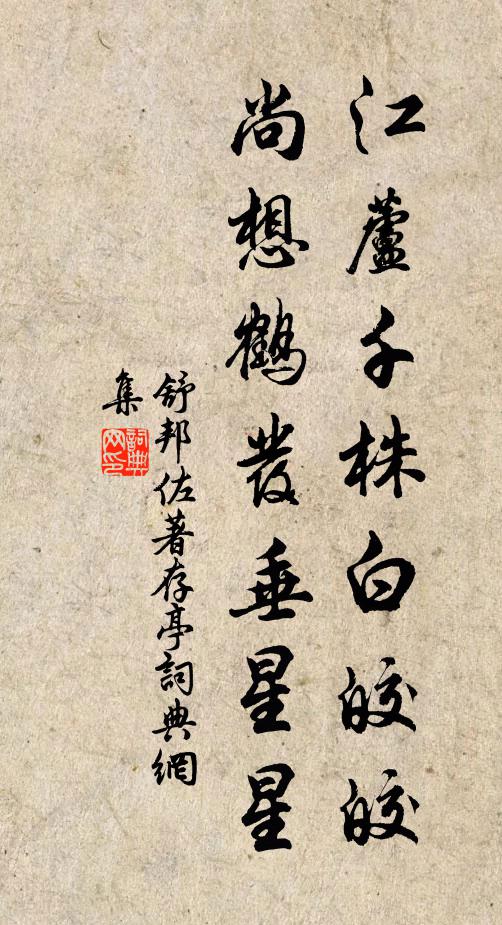 江蘆千株白皎皎
尚想鶴发垂星星
舒邦佐著存亭詞典網
集
詞典网印